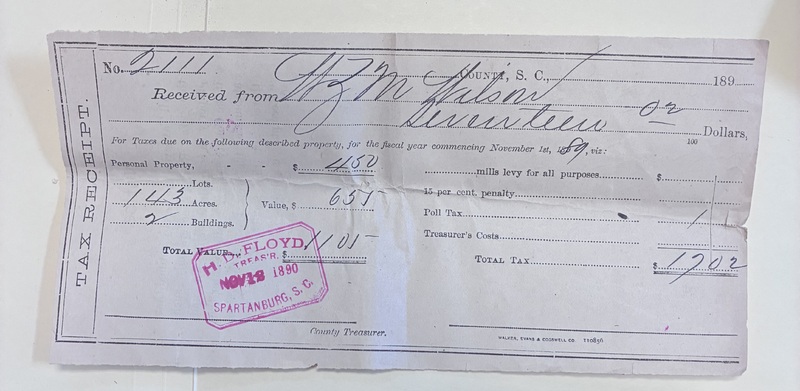 TAX RECEIPT.
No. 2111 County, S. C., 189
Received from W Z M Wilson
Seventeen 02/100 Dollars,
For Taxes due on the following described property, for the fiscal year commencing November 1st, 1889, viz:
Personal Property, - - $ 450
Lots.
143 Acres.
2 Buildings.
Value, $ 655
Total Value, $ 1105
H. B. FLOYD,
TREAS'R.
NOV 18 1890
SPARTANBURG, S. C.
County Treasurer.
mills levy for all purposes. $
15 per cent. penalty
Poll Tax 1
Treasurer's Costs
Total Tax $ 1702
WALKER, EVANS & COGSWELL CO. 110856